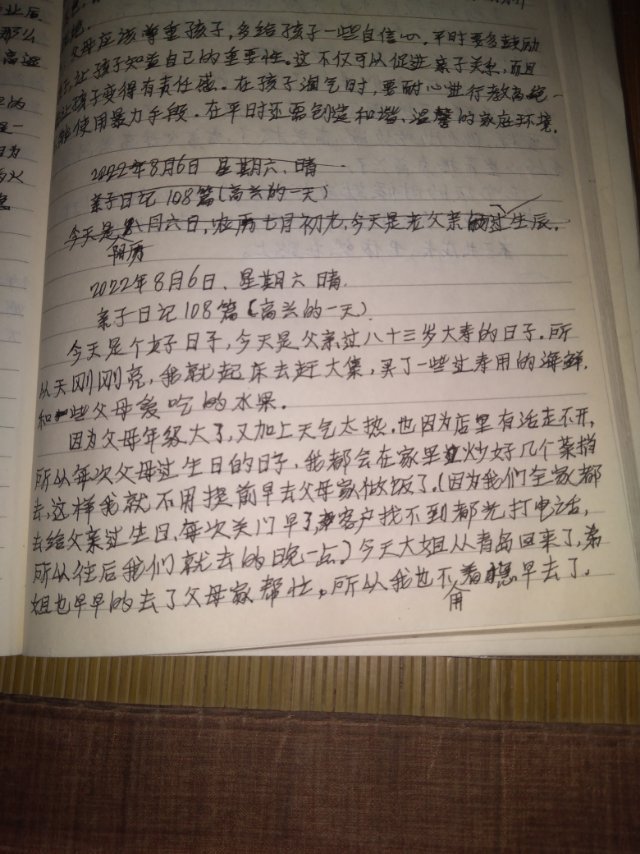 业后
那么
高远
父母应该尊重孩子,多给孩子一些自信心。平时要多鼓励
让孩子知道自己的重要性。这不仅可以促进亲子关系,而且
让孩子变得有责任感。在孩子淘气时,要耐心进行教育,绝
使用暴力手段。在平时还要创造和谐、温馨的家庭环境。
2022年8月6日 星期六、晴
亲子日记108篇(高兴的一天)
今天是八月六日,农历七月初九,今天是老父亲的过生辰。
阴历
2022年8月6日、星期六 晴
亲子日记108篇(高兴的一天)
今天是个好日子,今天是父亲过八十三岁大寿的日子。所
以天刚刚亮,我就起床去赶大集,买了一些过寿用的海鲜.
和一些父母爱吃的水果。
因为父母年级大了,又加上天气太热.也因为店里有活走不开,
所以每次父母过生日的日子,我都会在家里炒好几个菜捎
去,这样我就不用提前早去父母家做饭了。(因为我们全家都
去给父亲过生日,每次关门早了,客户找不到都光打电话,
所以往后我们就去的晚一点。)今天大姐从青岛回来了,弟
姐也早早的去了父母家帮忙。所以我也不着急早去了。
用